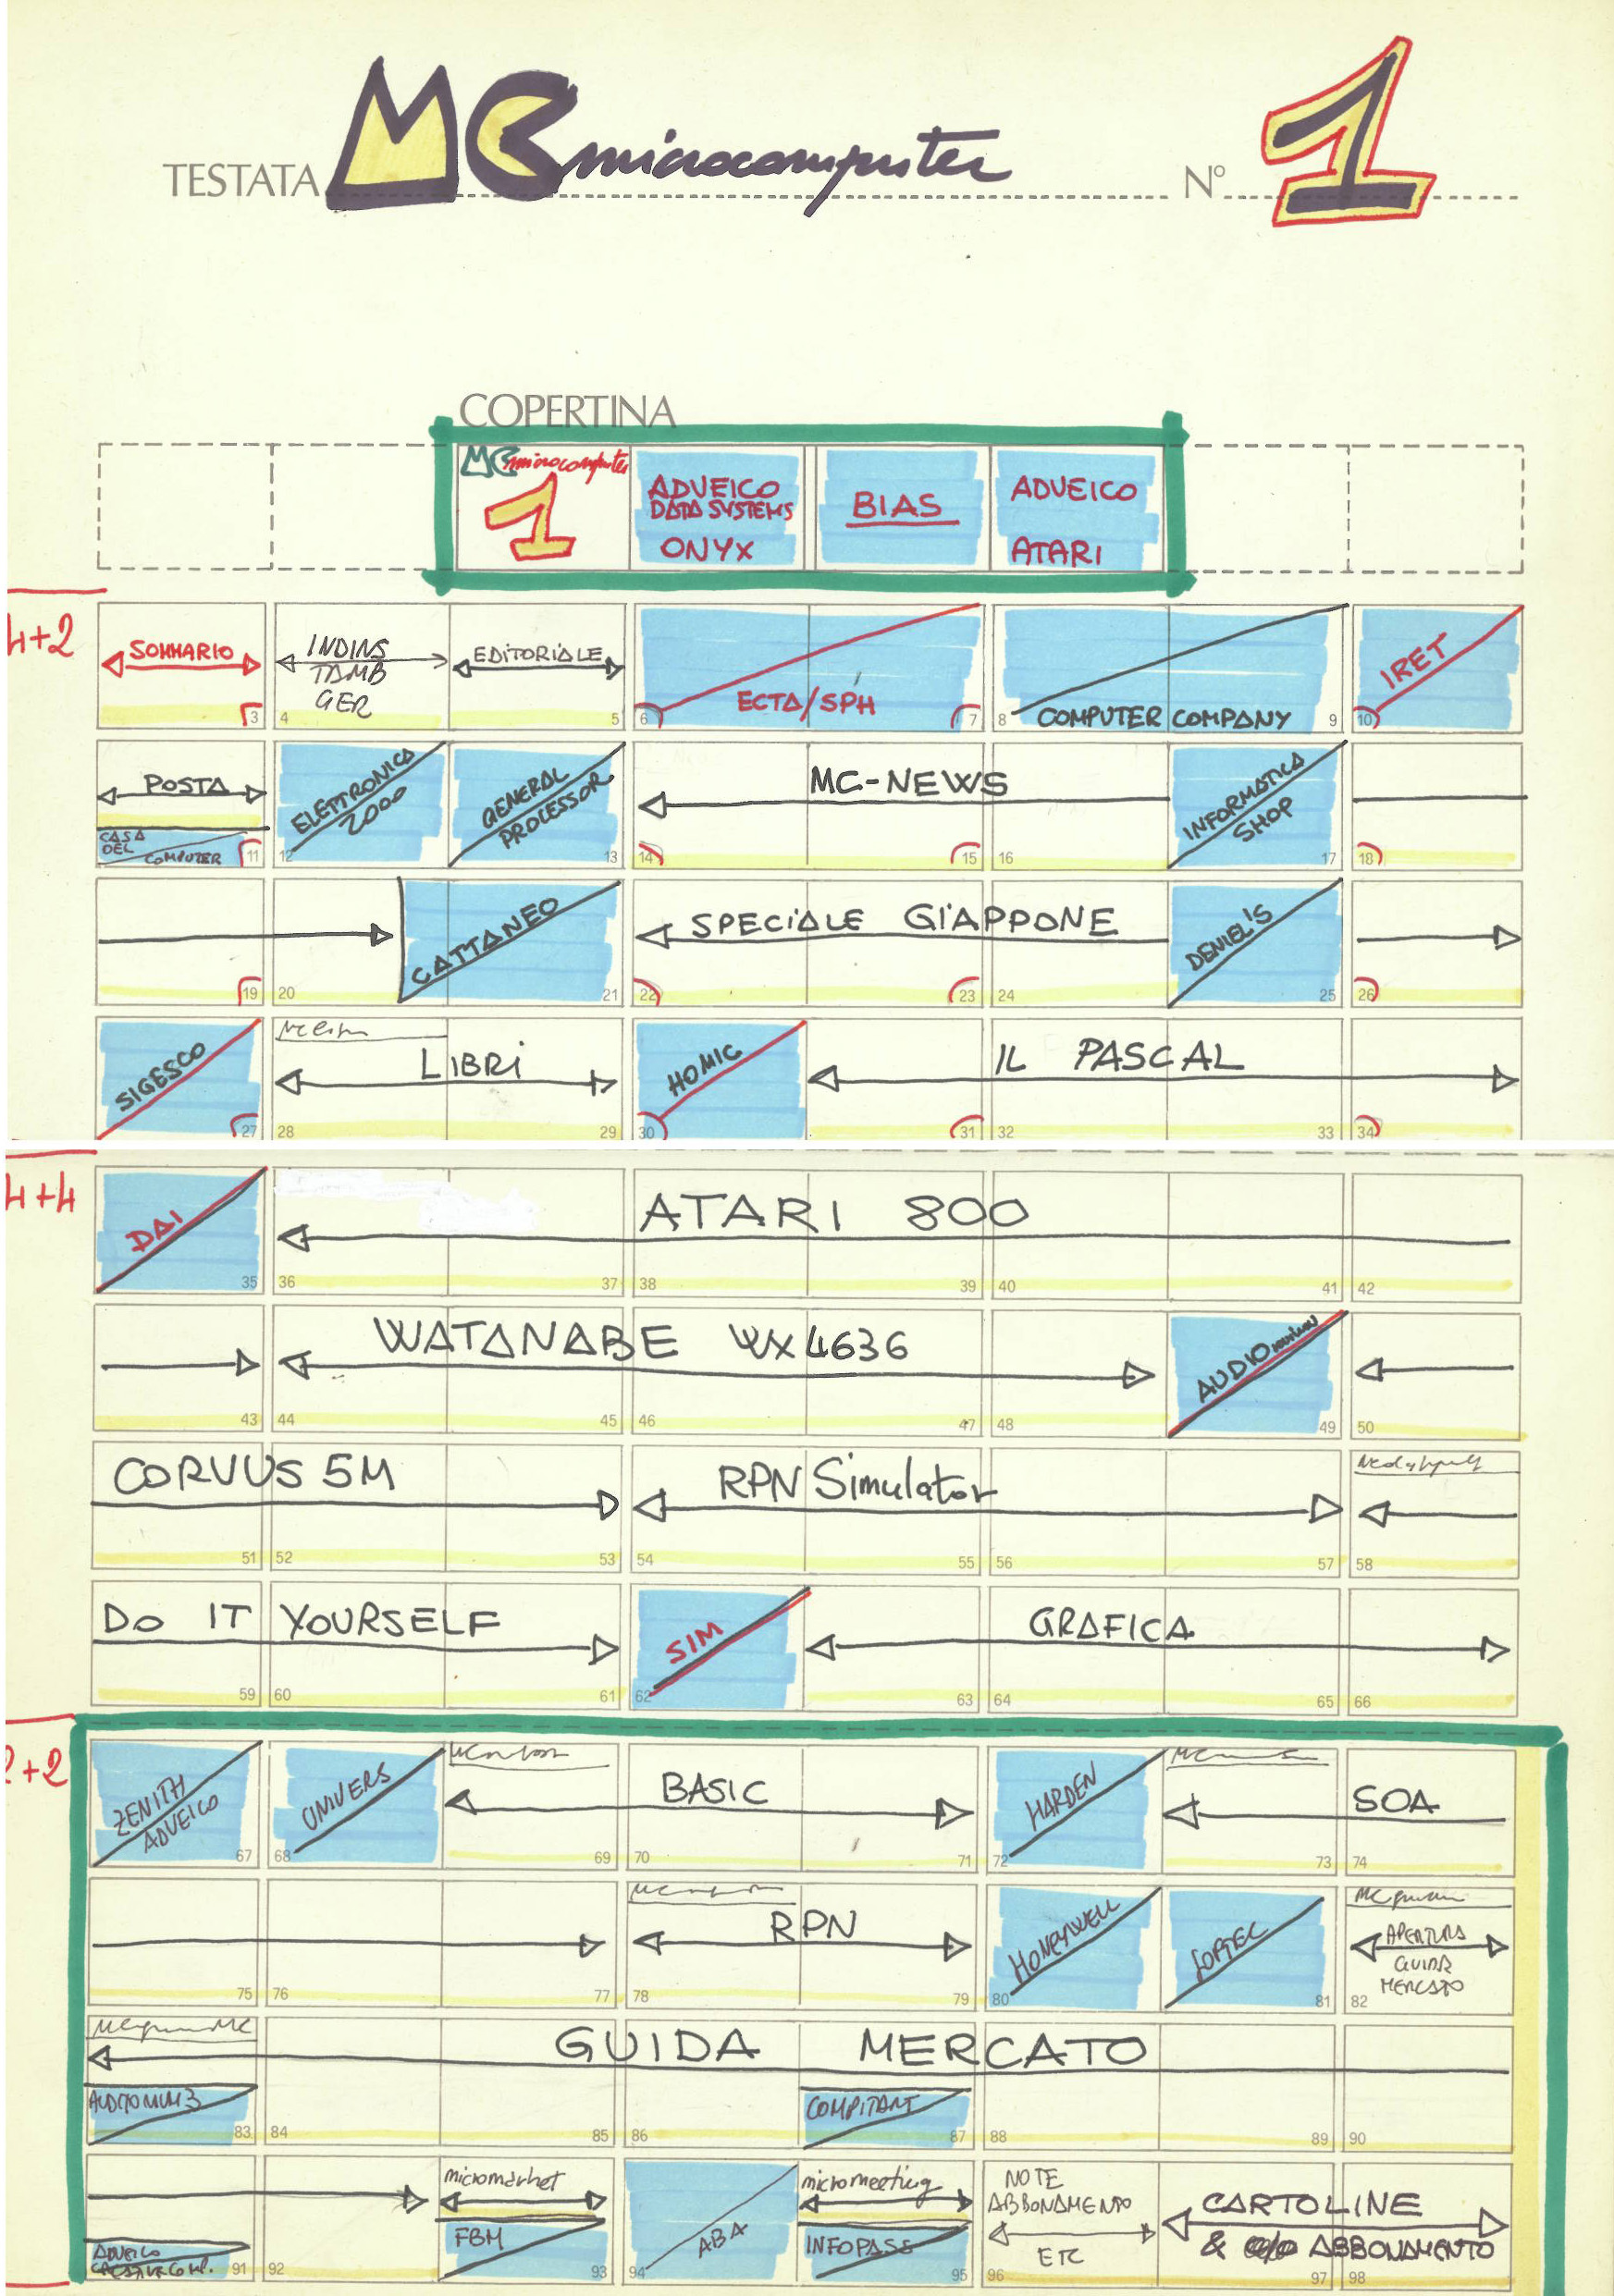 TESTATA MC microcomputer N° 1
COPERTINA
MC microcomputer
1
ADVEICO
DATA SYSTEMS
ONYX
BIAS
ADVEICO
ATARI
4+2
SOMMARIO
3
INDINS
TAMB
GER
4
EDITORIALE
5
ECTA/SPH
6 7
COMPUTER COMPANY
8 9
IRET
10
POSTA
CASA
DEL
COMPUTER
11
ELETTRONICA
2000
12
GENERAL
PROCESSOR
13
MC-NEWS
14 15 16
INFORMATICA
SHOP
17
18
19 20
CATTANEO
21
SPECIALE GIAPPONE
22 23 24
DENIEL'S
25
26
SIGESCO
27
LIBRI
28 29
HOMIC
30
IL PASCAL
31 32 33 34
4+4
DAI
35
ATARI 800
36 37 38 39 40 41 42
43
WATANABE WX4636
44 45 46 47 48
AUDIO review
49
50
CORVUS 5M
51 52 53
RPN Simulator
54 55 56 57
58
DO IT YOURSELF
59 60 61
SIM
62
GRAFICA
63 64 65 66
2+2
ZENITH
ADVEICO
67
UNIVERS
68
BASIC
69 70 71
HARDEN
72
SOA
73 74
75 76 77
RPN
78 79
HONEYWELL
80
SOFTEC
81
APERTURA
GUIDA
MERCATO
82
GUIDA MERCATO
AUDITORIUM 3
83
84 85 86
COMPITANT
87
88 89 90
ADVEICO
CREATIVE COMP.
91
92
micromarket
FBM
93
ABA
94
micromeeting
INFOPASS
95
NOTE
ABBONAMENTO
ETC
96
CARTOLINE
& c/c ABBONAMENTO
97 98